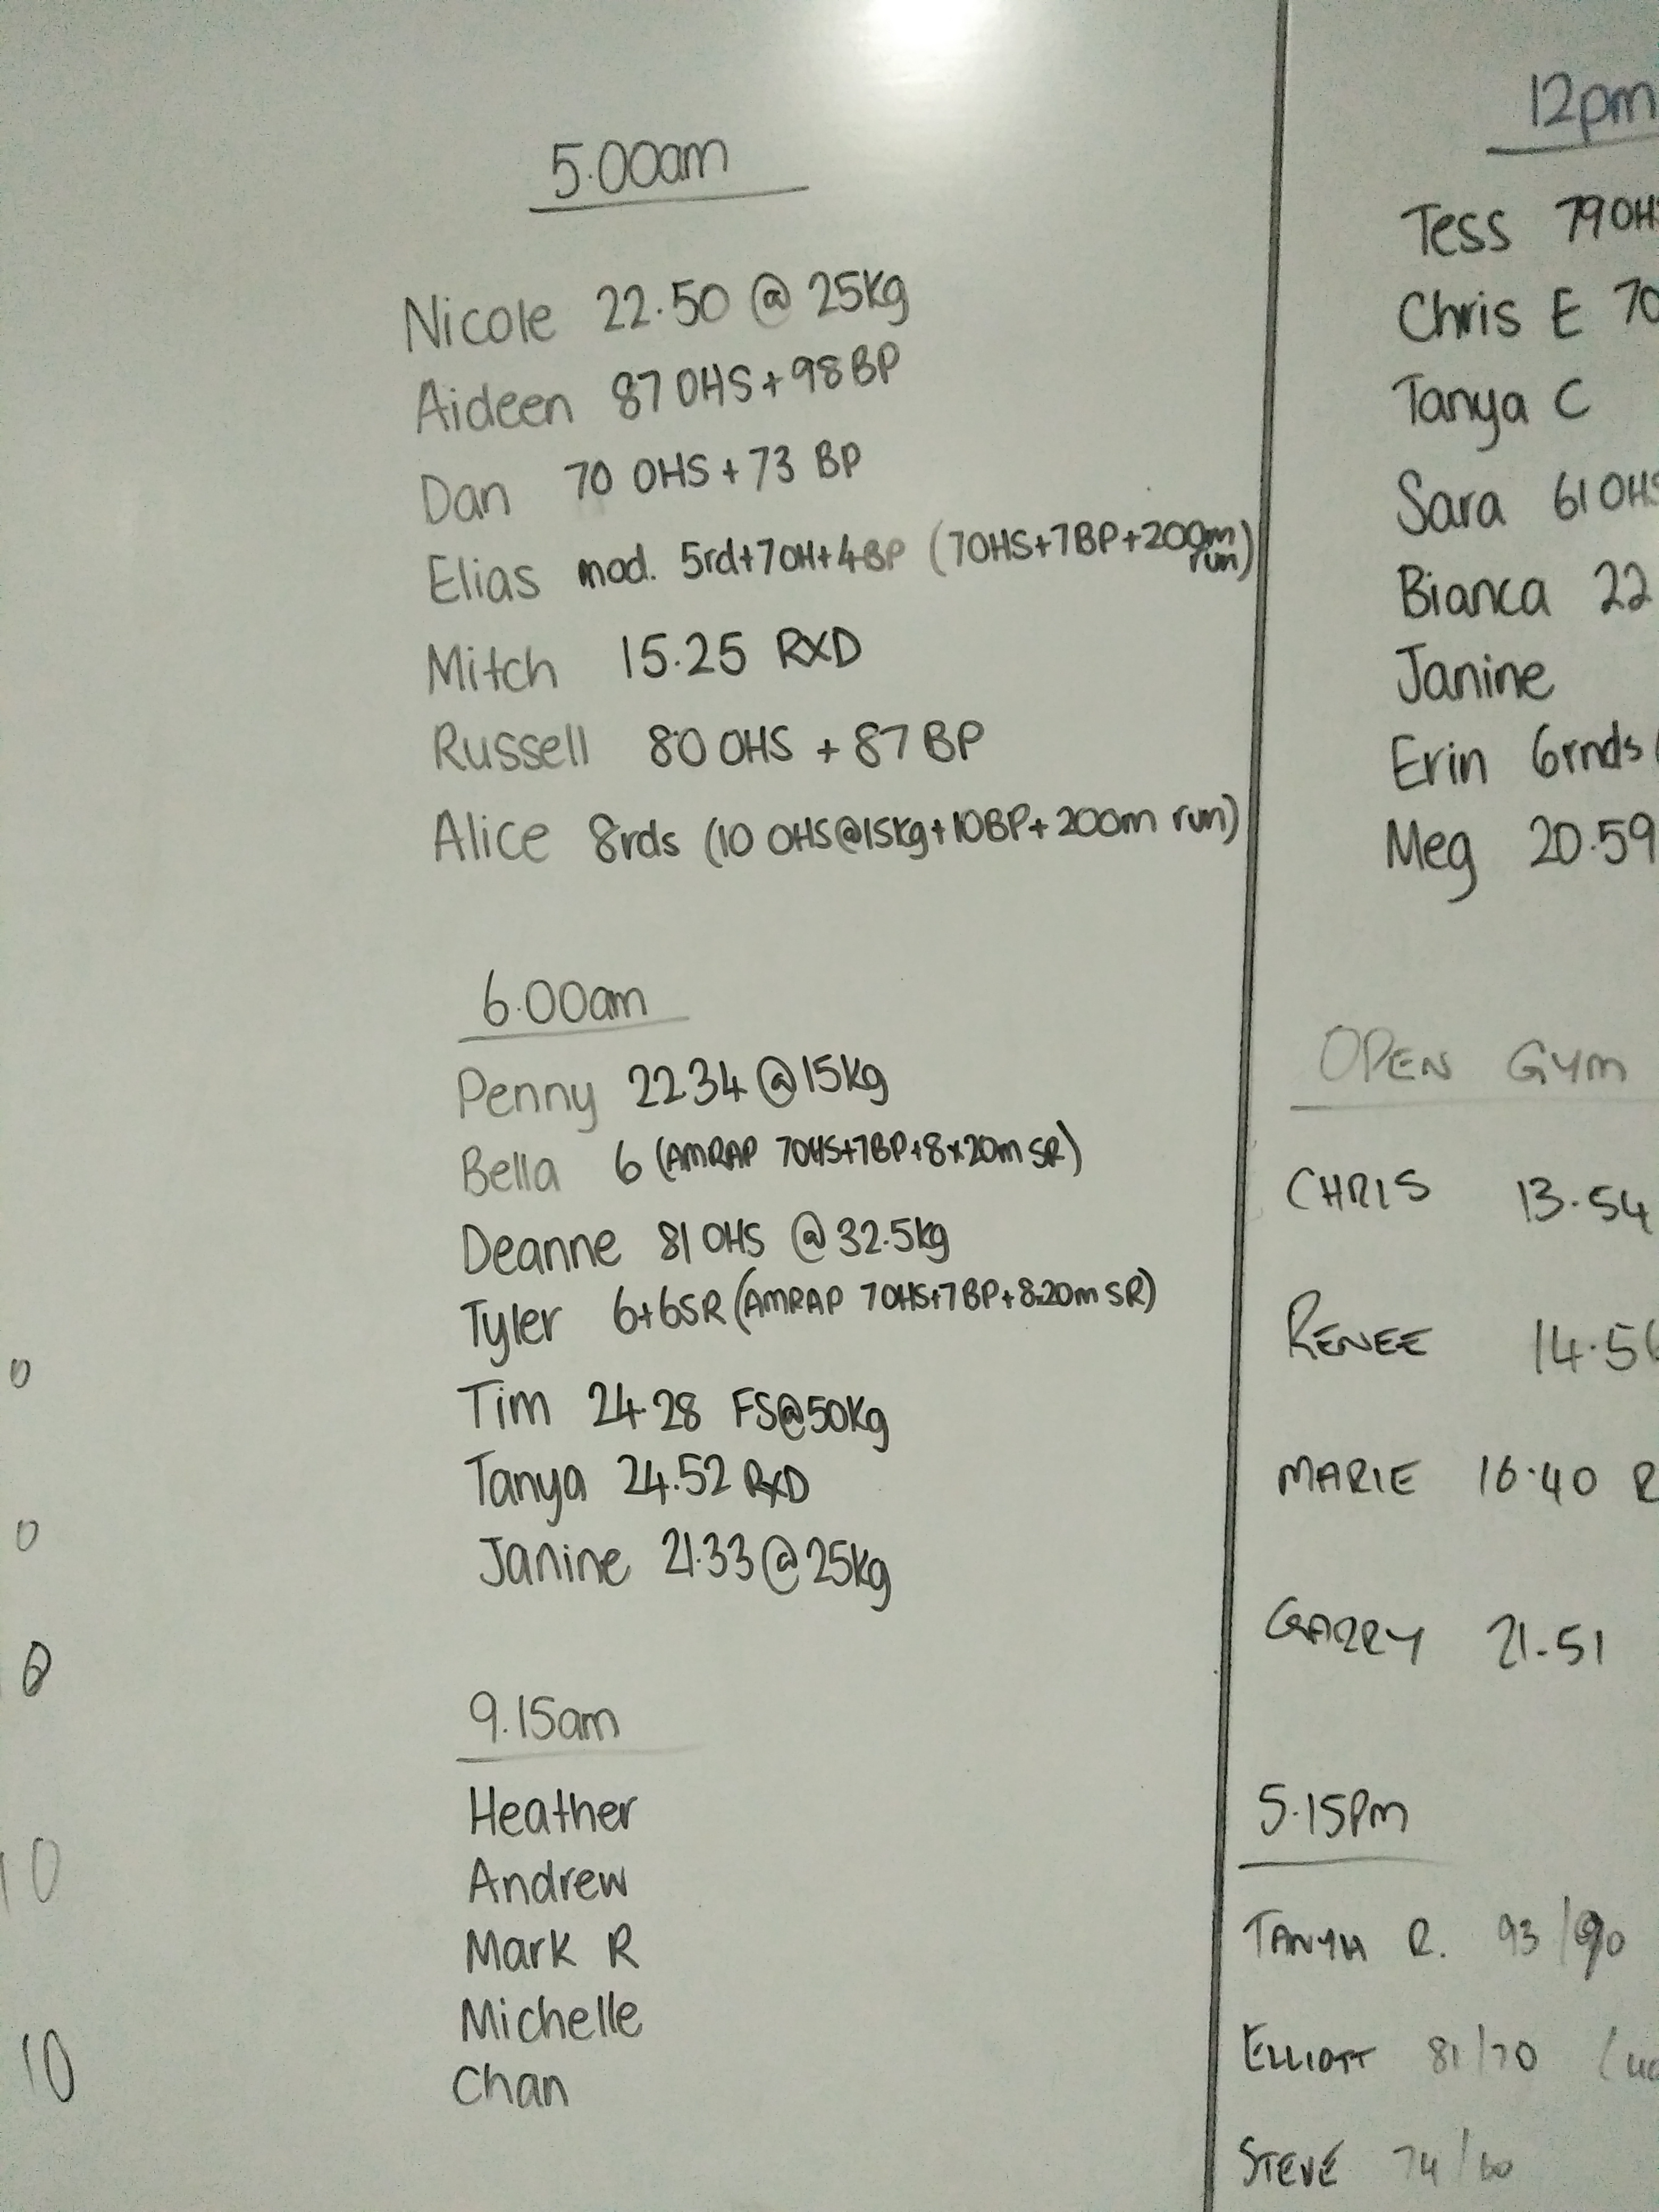 5.00am
Nicole 22.50 @ 25kg
Aideen 87 OHS + 98 BP
Dan 70 OHS + 73 BP
Elias mod. 5rd+7OH+4BP (7OHS+7BP+200m
run)
Mitch 15.25 RXD
Russell 80 OHS + 87 BP
Alice 8rds (10 OHS@15kg+10BP+200m run)
6.00am
Penny 22.34 @ 15kg
Bella 6 (AMRAP 7OHS+7BP+8x20m SR)
Deanne 81 OHS @ 32.5kg
Tyler 6+6SR (AMRAP 7OHS+7BP+8x20m SR)
Tim 24.28 FS@50kg
Tanya 24.52 RXD
Janine 21.33 @ 25kg
9.15am
Heather
Andrew
Mark R
Michelle
Chan
0
0
0
10
10
12pm
Tess 79 OHS
Chris E 70
Tanya C
Sara 61 OHS
Bianca 22
Janine
Erin 6rnds (
Meg 20.59
OPEN GYM
CHRIS 13.54
RENEE 14.56
MARIE 16.40 R
GARRY 21.51
5.15pm
TANYA R. 93/90
ELLIOTT 81/70
STEVE 74/